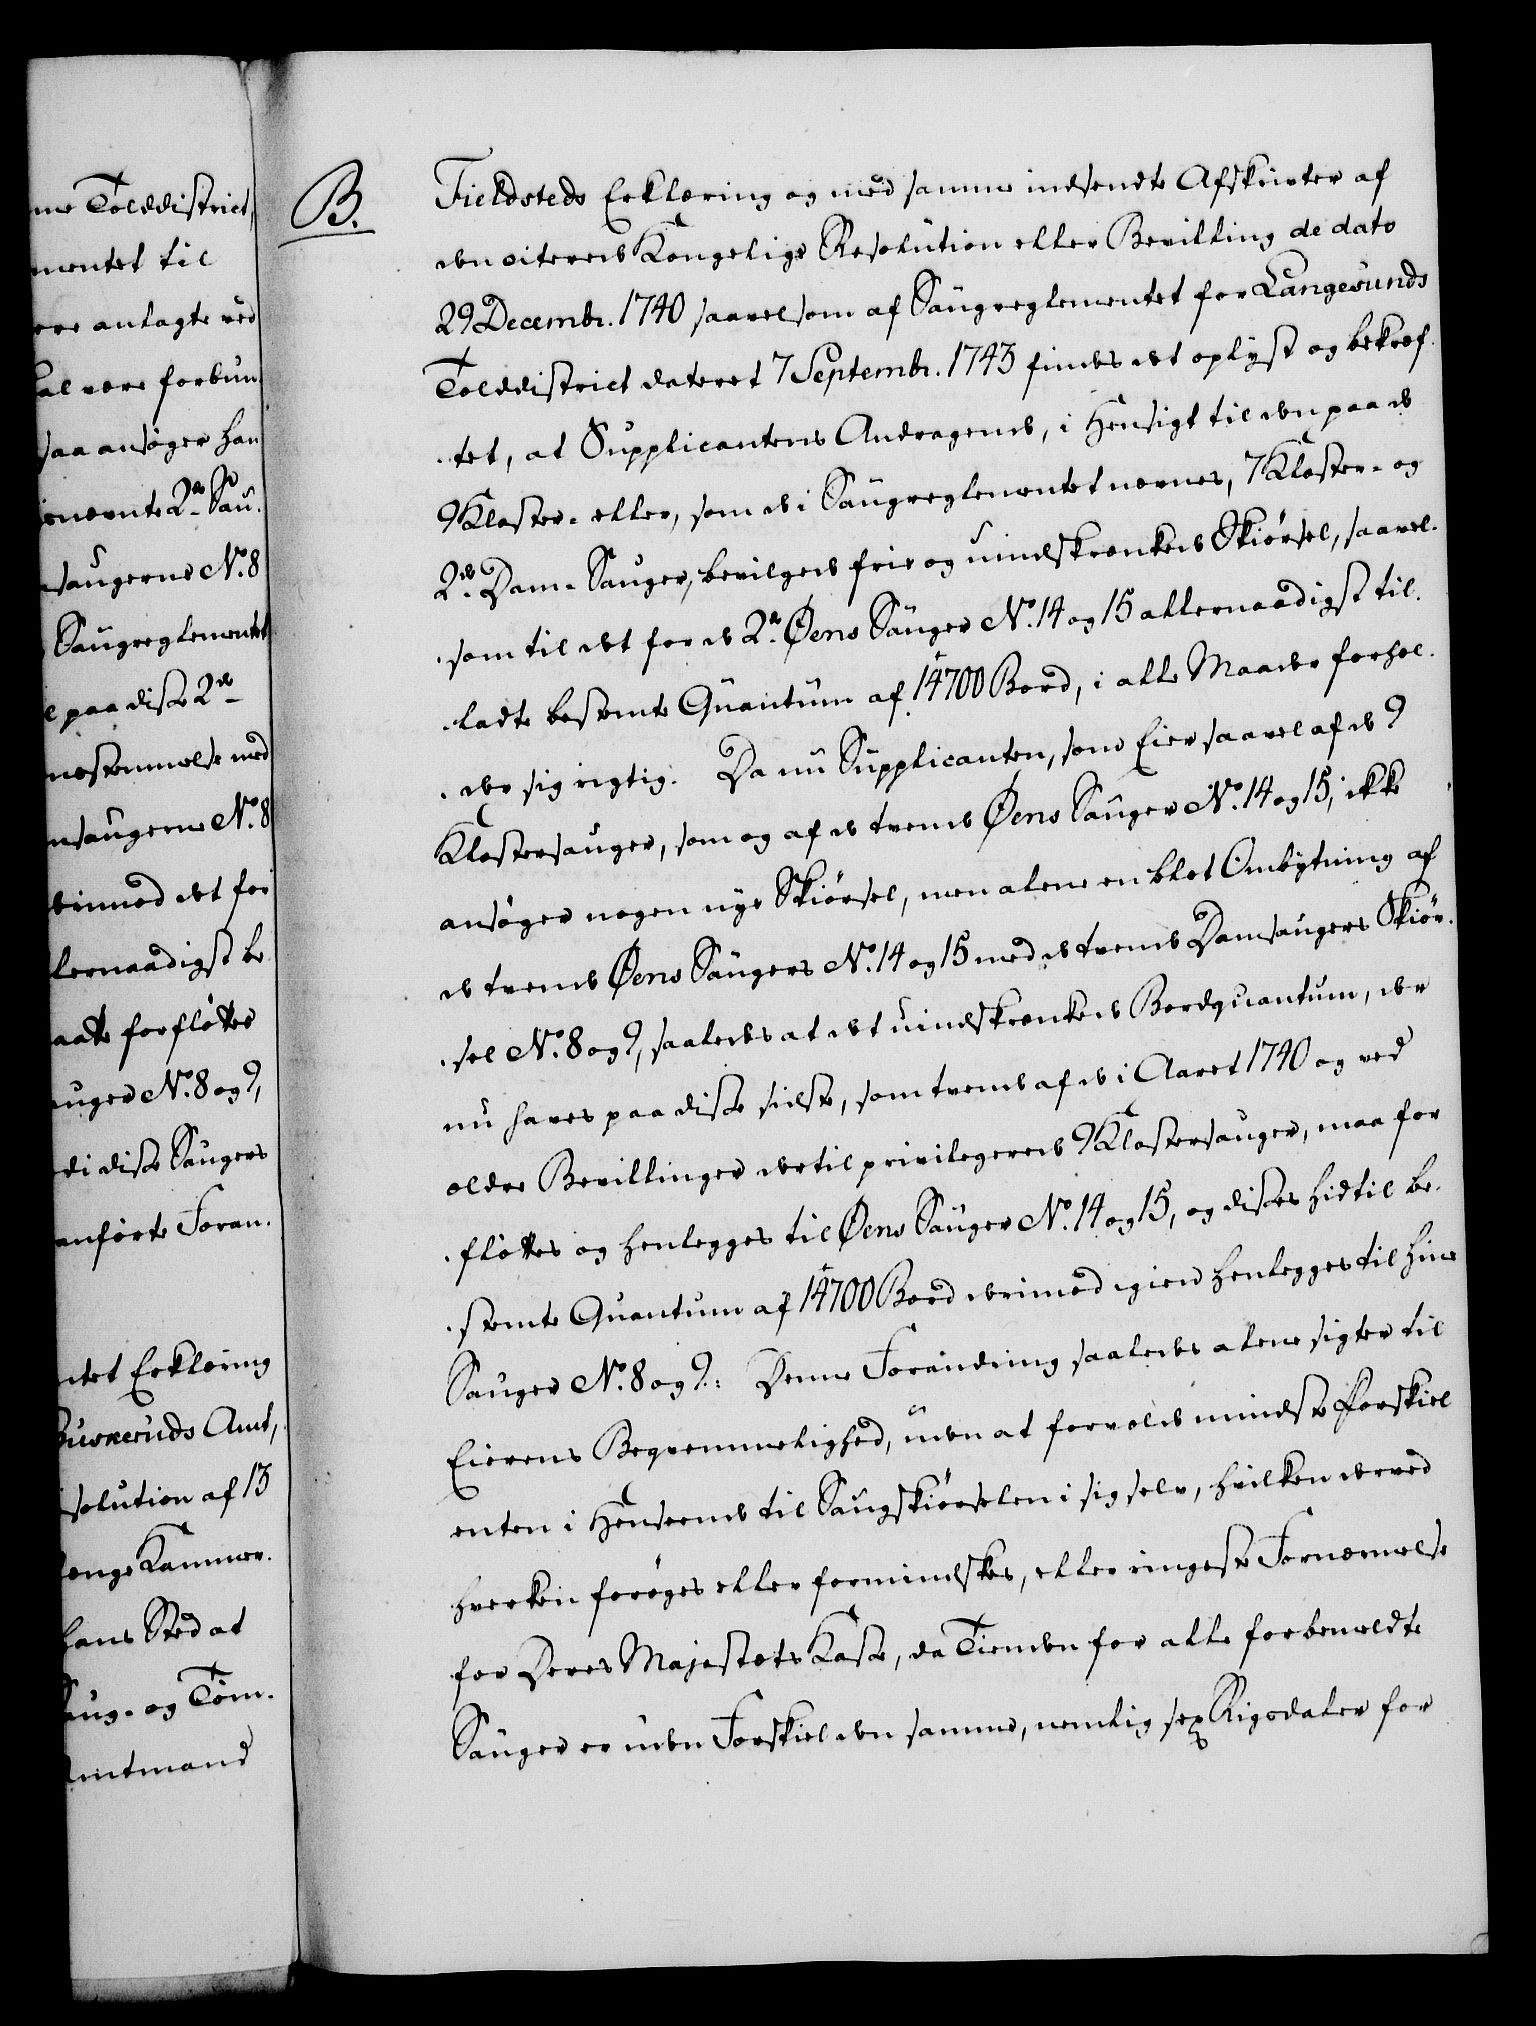 me Tolddistrict,
mentet til
ere anlagte ved
al være forbun
saa ansøger han
enævnte 2de Sau.
saugerne No. 8
Saugreglementet
e paa disse 2de
nestemmelse med
msaugerne No. 8
erimod det for
lernaadigst be
aatte forfløttes
auger No. 8 og 9,
di disse Saugers
anførte Foran.
ntet Erklæring
Buskeruds Amt,
solution af 13
enge Kammer.
hans Sted at
aug- og Tøm.
Amtmand
B.
Fieldsteds Erklæring og med samme indsendte Afskrivter af
den citerede Kongelige Resolution eller Bevilling de dato
29 Decembr. 1740 saavelsom af Saugreglementet for Langesunds
Tolddistrict dateret 7 Septembr. 1743 findes det oplyst og bekræf.
.tet, at Supplicantens Andragende, i Hensigt til den paa de
9 Kloster- eller, som de i Saugreglementet nævnes, 7 Kloster- og
2de Dam-Sauger, bevilgede frie og uindskrænkede Skiørsel, saavel.
.som til det for de 2de Øens Sauger No. 14 og 15 allernaadigst til.
.ladte bestemte Quantum af 14700 Bord, i alle Maader forhol.
.der sig rigtig. Da nu Supplicanten, som Eier saavel af de 9
Klostersauger, som og af de tvende Øens Sauger No. 14 og 15, ikke
ansøger nogen nye Skiørsel, men alene en blot Ombytning af
de tvende Øens Saugers No. 14 og 15 med de tvende Damsaugers Skiør.
.sel No. 8 og 9, saaledes at det uindskrænkede Bordquantum, der
nu haves paa disse sidste, som tvende af de i Aaret 1740 og ved
ældre Bevillinger dertil privilegerede 9 Klostersauger, maa for
.fløttes og henlegges til Øens Sauger No. 14 og 15, og disses hidtil be.
.stemte Quantum af 14700 Bord derimod igien henlegges til hine
Sauger No. 8 og 9.: Denne Forandring saaledes alene sigter til
Eierens Beqvemmelighed, uden at forvolde mindste Forskiel
enten i Henseende til Saugskiørselen i sig selv, hvilken derved
hverken forøges eller formindskes, eller ringeste Fornærmelse
for Deres Majestæts Kasse, da Tienden for alle forbemeldte
Sauger er uden Forskiel den samme, nemlig sex Rigsdaler for